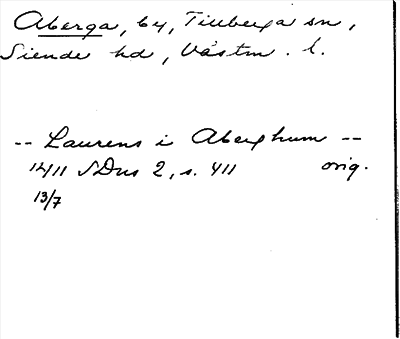 Aberga, by, Tillberga sn,
Siende hd, Västm. l.
-- Laurens i Aberghum --
1411 SDns 2, s. 411 orig.
13/7